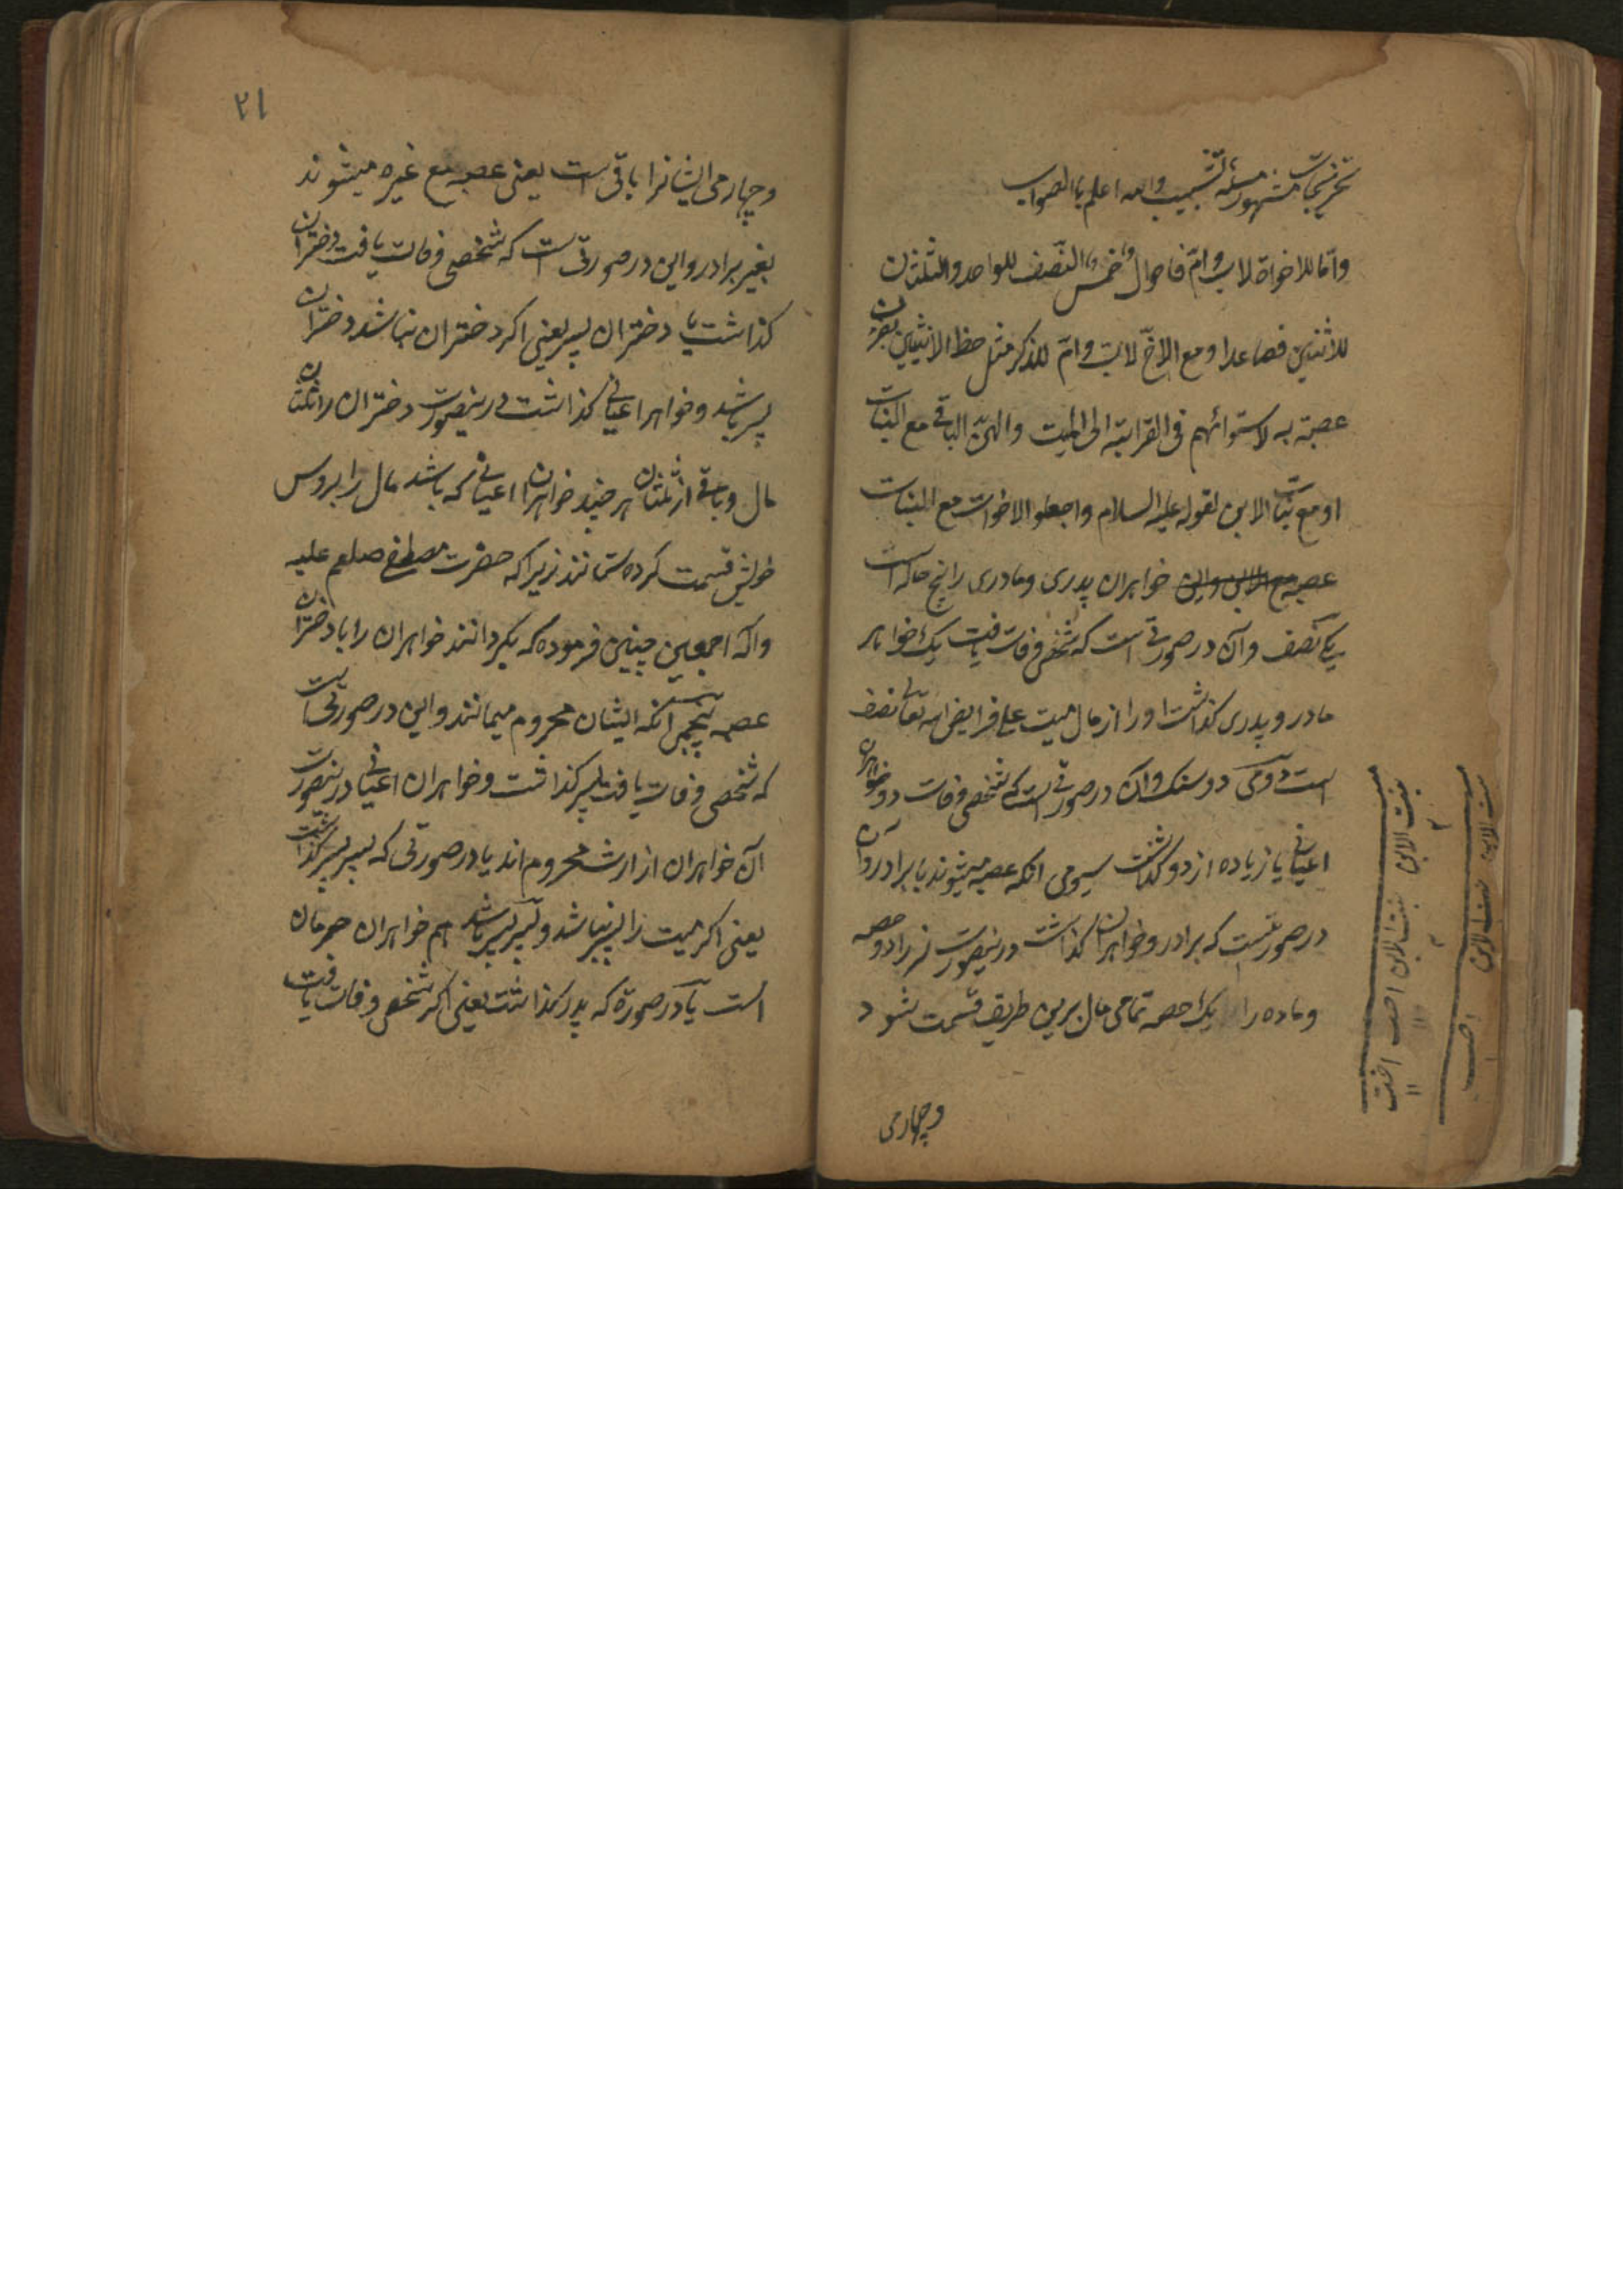 تخریجات مشهور مسئلة تشبیب والله اعلم بالصواب
واما للاخواة لاب وام فاحوال خمس النصف للواحد والثلثان
للاثنتین فصاعدا ومع الاخ لاب وام للذکر مثل حظ الانثیین یصرن
عصبة به لاستوائهم فی القرابته الی المیت والهن الباقی مع البنات
او مع بنات الابن لقوله علیه السلام واجعلوا الاخوات مع البنات
عصبه خواهران پدری ومادری را پنج حاله است
یکی نصف وآن در صورتی است که شخص وفات یافت یک خواهر
مادر و پدری کذاشت او را از مال میت علی فرایض الله تعالی نصف
است دومی دوسنک وآن در صورتی است که شخصی وفات دو خواهران
اعیانی یا زیاده از دو کذاشت سیومی انکه عصبه میشوند با برادر وآن
در صورتیست که برادر وخواهران کذاشت درینصورت نر را دو حصه
وماده را یک حصه تمامی مال برین طریق قسمت شود
وچهارمی
بنت الابن بنت الابن اخت اخت
بنت الابن بنت الابن اخت
۲۱
وچهارمی ایشانرا باقی است یعنی عصبه مع غیره میشوند
بغیر برادر واین در صورتی است که شخصی وفات یافت دختران
کذاشت یا دختران پسر یعنی اکر دختران نباشد دختران
پسر باشد وخواهر اعیانی کذاشت درینصورت دختران را ثلثان
مال وباقی از ثلثان هر چند خواهران اعیانی که باشد مال را بروس
خویش قسمت کرده ستانند زیرا که حضرت مصطفی صلعم علیه
وآله اجمعین چنین فرموده که بکردانند خواهران را با دختران
عصبه پنجمی آنکه ایشان محروم میمانند واین در صورتی است
که شخصی وفات یافت پسر کذاشت وخواهران اعیانی درینصورت
آن خواهران از ارث محروم اند یا در صورتی که پسر پسر کذاشت
یعنی اکر میت را پسر نباشد وپسر پسر باشد هم خواهران حرمان
است یا در صورة که پدر کذاشت یعنی اکر شخص وفات یافت